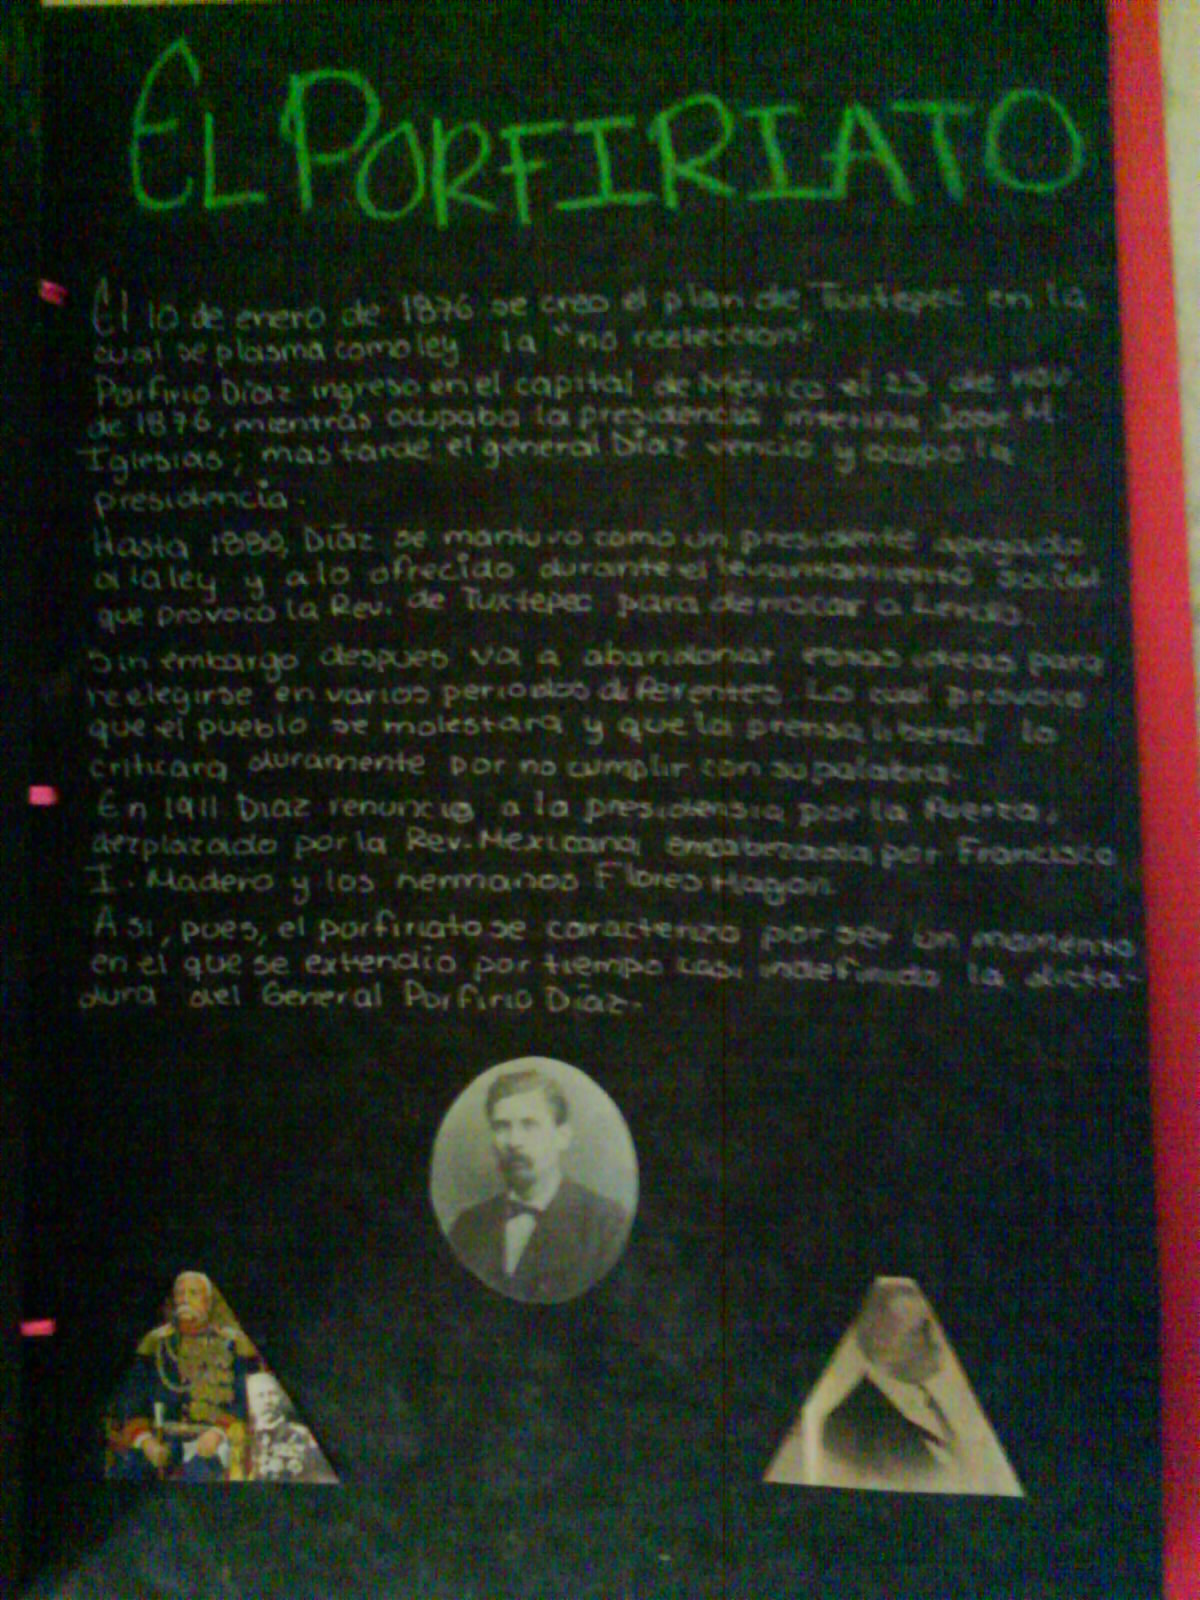 EL PORFIRIATO
El 10 de enero de 1876 se creo el plan de Tuxtepec en la
cual se plasma como ley la "no reeleccion"
Porfirio Díaz ingreso en el capital de México el 23 de nov.
de 1876, mientras ocupaba la presidencia interina Jose M.
Iglesias; mas tarde el general Díaz vencio y ocupo la
presidencia.
Hasta 1880, Díaz se mantuvo como un presidente apegado
a la ley y a lo ofrecido durante el levantamiento social
que provocó la Rev. de Tuxtepec para derrocar a Lerdo.
Sin embargo despues va a abandonar estas ideas para
reelegirse en varios periodos diferentes. Lo cual provoco
que el pueblo se molestara y que la prensa liberal lo
criticara duramente por no cumplir con su palabra.
En 1911 Diaz renuncio a la presidensia por la fuerza,
desplazado por la Rev. Mexicana, encabezada por Francisco
I. Madero y los hermanos Flores Magon.
Asi, pues, el porfiriato se caracterizo por ser un momento
en el que se extendio por tiempo casi indefinido la dicta-
dura del General Porfirio Díaz.